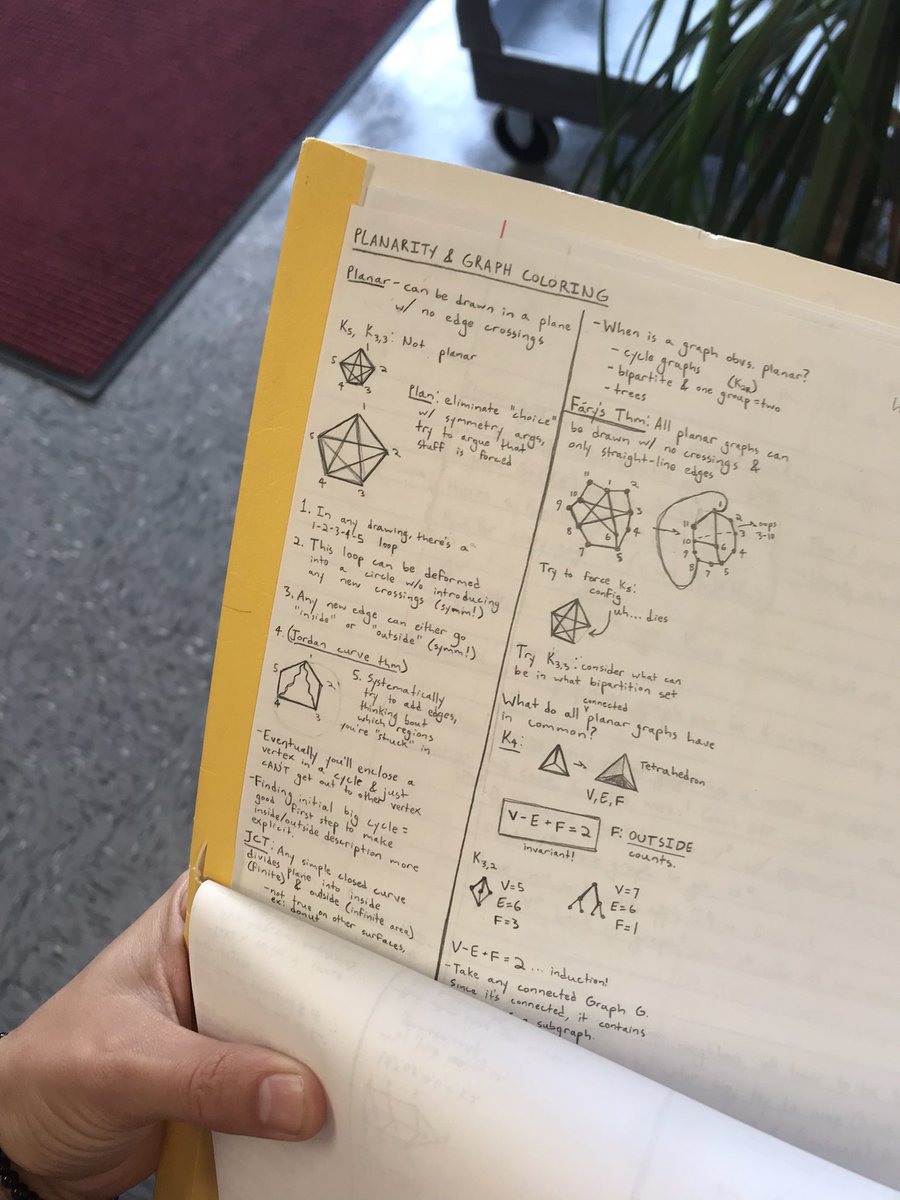 PLANARITY & GRAPH COLORING
Planar - can be drawn in a plane
w/ no edge crossings
K5, K3,3: Not planar
1
5
2
4
3
Plan: eliminate "choice"
w/ symmetry args,
try to argue that
stuff is forced
1
5
2
4
3
1. In any drawing, there's a
1-2-3-4-5 loop
2. This loop can be deformed
into a circle w/o introducing
any new crossings (symm!)
3. Any new edge can either go
"inside" or "outside" (symm!)
4. (Jordan curve thm)
1
5
2
4
3
5. Systematically
try to add edges,
thinking bout
which regions
you're "stuck" in
- Eventually you'll enclose a
vertex in a cycle & just
CAN'T get out to other vertex
- Finding initial big cycle =
good first step to make
inside/outside description more
explicit.
JCT: Any simple closed curve
divides plane into inside
(finite) & outside (infinite area)
- not true on other surfaces,
ex: donut
- When is a graph obvs. planar?
- cycle graphs
- bipartite & one group = two
- trees
Fáry's Thm: All planar graphs can
be drawn w/ no crossings &
only straight-line edges
11
1
2
10
9
3
8
4
6
7
5
1
2
oops
3-10
11
3
10
6
4
9
8
7
5
Try to force K5:
config
uh... dies
Try K3,3: consider what can
be in what bipartition set
What do all connected planar graphs have
in common?
K4:
Tetrahedron
V, E, F
V-E+F=2
invariant!
F: OUTSIDE
counts.
K3,2
V=5
E=6
F=3
V=7
E=6
F=1
V-E+F=2 ... induction!
- Take any connected Graph G.
Since it's connected, it contains
subgraph.